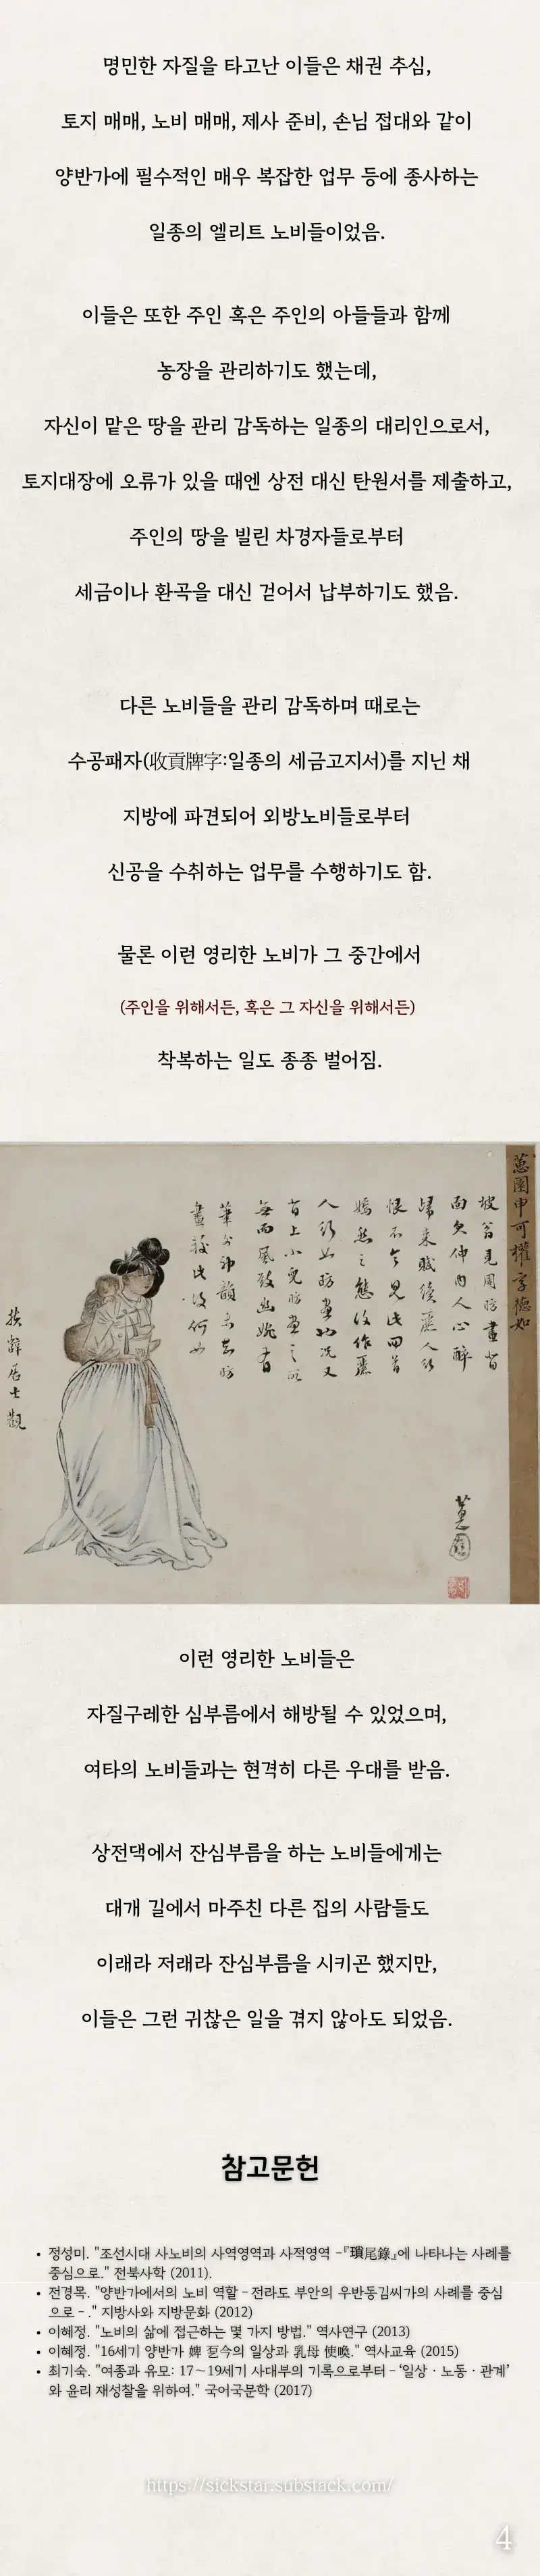 명민한 자질을 타고난 이들은 채권 추심,
토지 매매, 노비 매매, 제사 준비, 손님 접대와 같이
양반가에 필수적인 매우 복잡한 업무 등에 종사하는
일종의 엘리트 노비들이었음.
이들은 또한 주인 혹은 주인의 아들들과 함께
농장을 관리하기도 했는데,
자신이 맡은 땅을 관리 감독하는 일종의 대리인으로서,
토지대장에 오류가 있을 때엔 상전 대신 탄원서를 제출하고,
주인의 땅을 빌린 차경자들로부터
세금이나 환곡을 대신 걷어서 납부하기도 했음.
다른 노비들을 관리 감독하며 때로는
수공패자(收貢牌字:일종의 세금고지서)를 지닌 채
지방에 파견되어 외방노비들로부터
신공을 수취하는 업무를 수행하기도 함.
물론 이런 영리한 노비가 그 중간에서
(주인을 위해서든, 혹은 그 자신을 위해서든)
착복하는 일도 종종 벌어짐.
蕙園申可權字德如
坡翁見周昉畫背
面欠伸內人心醉
歸來賦續麗人行
恨不令見此回首
嫣然之態後作麗
人行
畫
蕙園
居士觀
이런 영리한 노비들은
자질구레한 심부름에서 해방될 수 있었으며,
여타의 노비들과는 현격히 다른 우대를 받음.
상전댁에서 잔심부름을 하는 노비들에게는
대개 길에서 마주친 다른 집의 사람들도
이래라 저래라 잔심부름을 시키곤 했지만,
이들은 그런 귀찮은 일을 겪지 않아도 되었음.
참고문헌
• 정성미. "조선시대 사노비의 사역영역과 사적영역 -『瑣尾錄』에 나타나는 사례를
중심으로." 전북사학 (2011).
• 전경목. "양반가에서의 노비 역할 - 전라도 부안의 우반동김씨가의 사례를 중심
으로 - ." 지방사와 지방문화 (2012)
• 이혜정. "노비의 삶에 접근하는 몇 가지 방법." 역사연구 (2013)
• 이혜정. "16세기 양반가 婢 今의 일상과 乳母 使喚." 역사교육 (2015)
• 최기숙. "여종과 유모: 17～19세기 사대부의 기록으로부터 - '일상ㆍ노동ㆍ관계'
와 윤리 재성찰을 위하여." 국어국문학 (2017)
https://sickstar.substack.com/
4